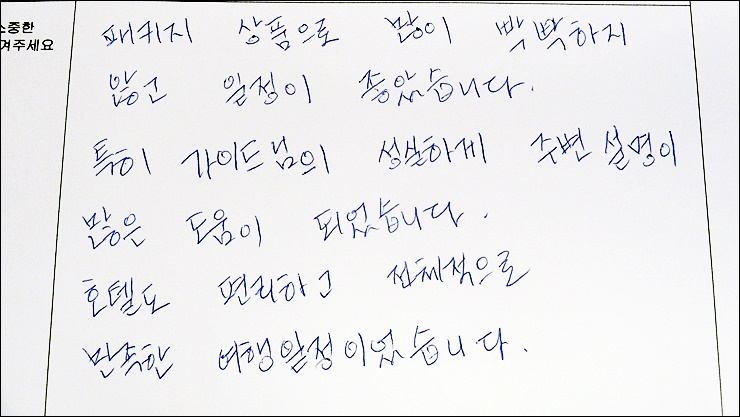 소중한
겨주세요
패키지 상품으로 많이 빡빡하지
않고 일정이 좋았습니다.
특히 가이드님의 성실하게 주변 설명이
많은 도움이 되었습니다.
호텔도 편리하고 전체적으로
만족한 여행일정이었습니다.